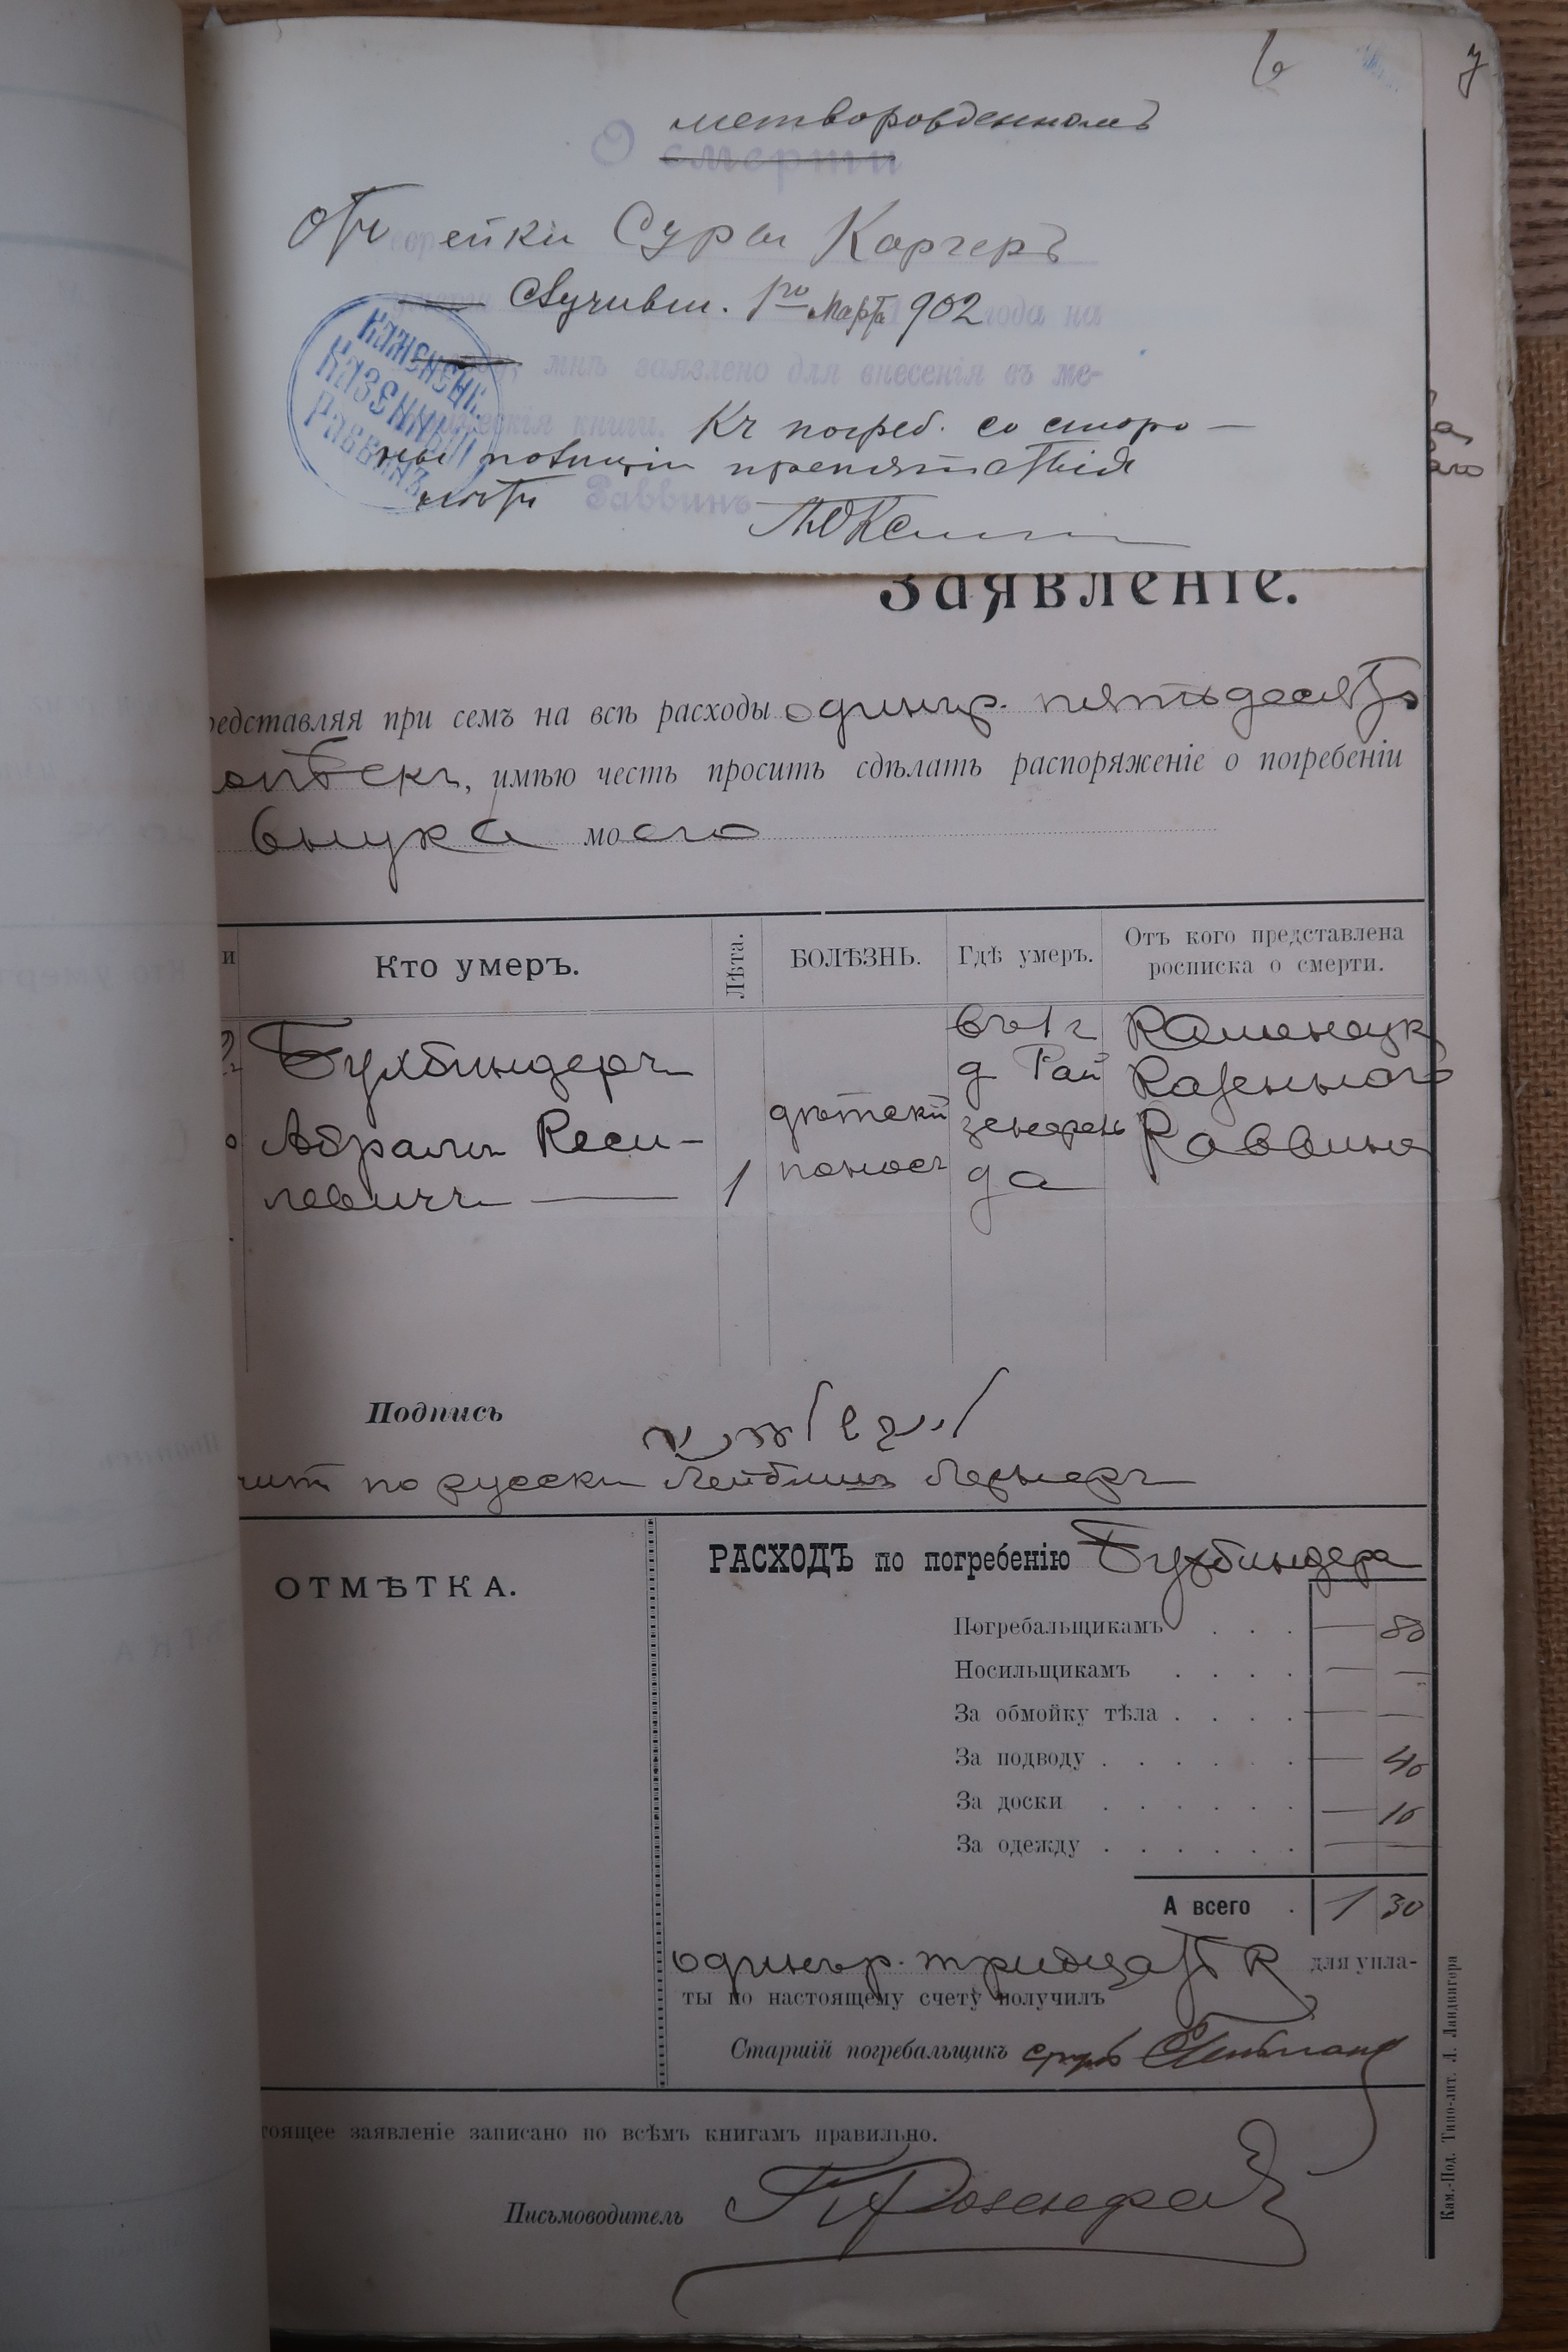 6
7
мертворожденномъ
О смерти
отъ еврейки Суры Каргеръ
случивш. 1го Марта 902 года на
мнѣ заявлено для внесенія въ ме-
трическія книги. Къ погреб. со сторо-
ны полиціи препятствія
нѣтъ Раввинъ
Каменецк.
Казенный
Раввинъ
Заявленіе.
редставляя при семъ на всѣ расходы одинъ р. пятьдесятъ
опѣекъ, имѣю честь просить сдѣлать распоряженіе о погребеніи
внука моего
и Кто умеръ. Лѣта. БОЛѢЗНЬ. Гдѣ умеръ. Отъ кого представлена
росписка о смерти.
Бухбиндеръ
Абрамъ Иеси-
левичъ
1
дѣтскій
поносъ
въ 1 г
д Рай
зенфель
да
Каменецк
Казенного
Раввина
Подпись
чит по русски Лейблишъ Лернеръ
ОТМѢТКА.
РАСХОДЪ по погребенію Бухбиндера
Погребальщикамъ . . . — 80
Носильщикамъ . . . . — —
За обмойку тѣла . . . . — —
За подводу . . . . . . — 40
За доски . . . . . . — 10
За одежду . . . . . . — —
А всего . 1 30
одинъ р. тридцать к для упла-
ты по настоящему счету получилъ
Старшій погребальщикъ
тоящее заявленіе записано по всѣмъ книгамъ правильно.
Письмоводитель
Кам.-Под. Типо-лит. Л. Ландвигера